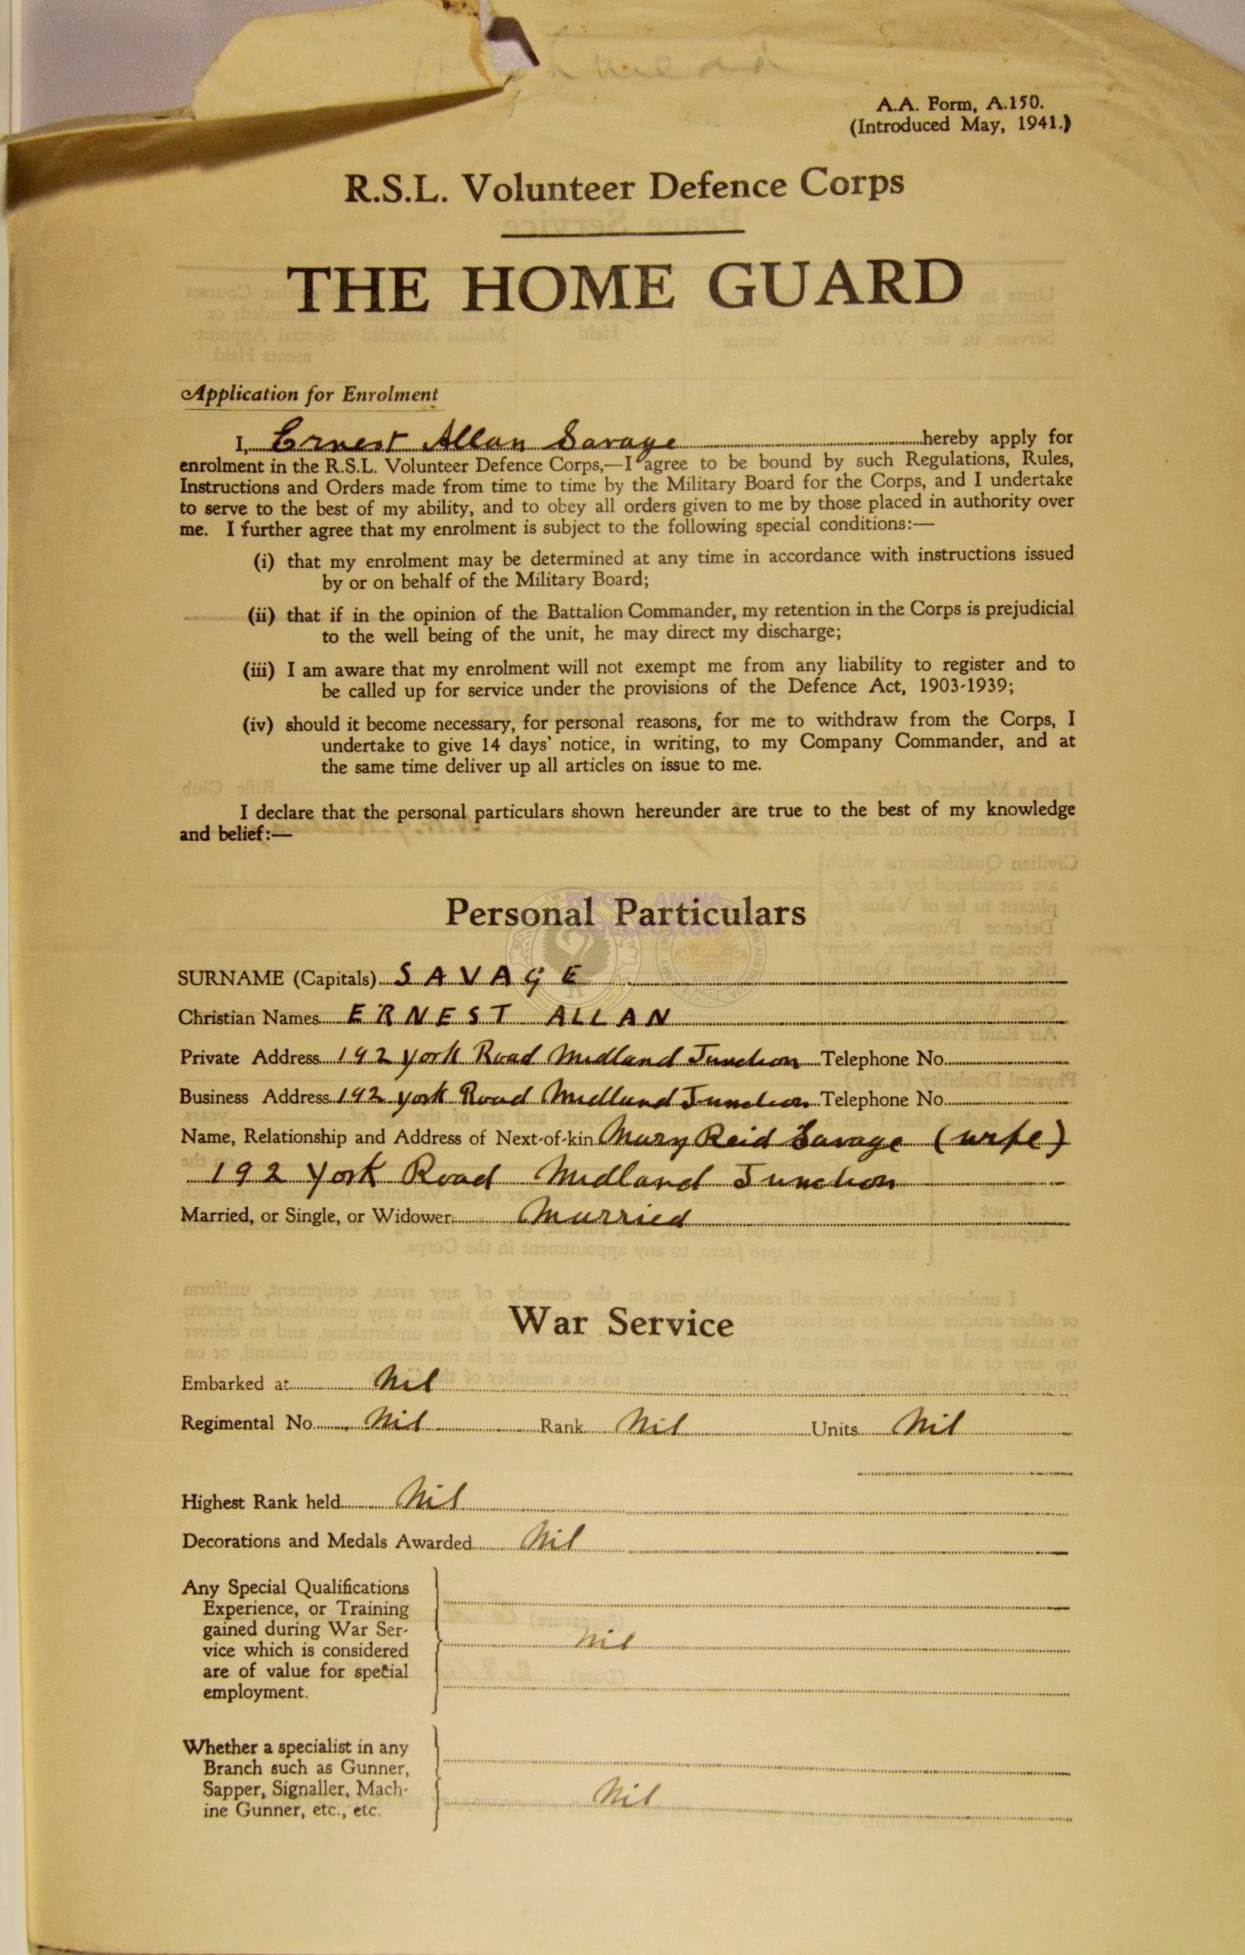 A.A. Form, A.150.
(Introduced May, 1941.)
R.S.L. Volunteer Defence Corps
THE HOME GUARD
Application for Enrolment
I, Ernest Allan Savage hereby apply for
enrolment in the R.S.L. Volunteer Defence Corps,—I agree to be bound by such Regulations, Rules,
Instructions and Orders made from time to time by the Military Board for the Corps, and I undertake
to serve to the best of my ability, and to obey all orders given to me by those placed in authority over
me. I further agree that my enrolment is subject to the following special conditions:—
(i) that my enrolment may be determined at any time in accordance with instructions issued
by or on behalf of the Military Board;
(ii) that if in the opinion of the Battalion Commander, my retention in the Corps is prejudicial
to the well being of the unit, he may direct my discharge;
(iii) I am aware that my enrolment will not exempt me from any liability to register and to
be called up for service under the provisions of the Defence Act, 1903-1939;
(iv) should it become necessary, for personal reasons, for me to withdraw from the Corps, I
undertake to give 14 days' notice, in writing, to my Company Commander, and at
the same time deliver up all articles on issue to me.
I declare that the personal particulars shown hereunder are true to the best of my knowledge
and belief:—
WAGS - AMWA
COLLECTION
Personal Particulars
SURNAME (Capitals) SAVAGE
Christian Names ERNEST ALLAN
Private Address 192 York Road Midland Junction Telephone No.
Business Address 192 York Road Midland Junction Telephone No.
Name, Relationship and Address of Next-of-kin Mary Reid Savage (wife)
192 York Road Midland Junction
Married, or Single, or Widower Married
War Service
Embarked at Nil
Regimental No. Nil Rank Nil Units Nil
Highest Rank held Nil
Decorations and Medals Awarded Nil
Any Special Qualifications
Experience, or Training
gained during War Ser-
vice which is considered Nil
are of value for special
employment.
Whether a specialist in any
Branch such as Gunner,
Sapper, Signaller, Mach- Nil
ine Gunner, etc., etc.